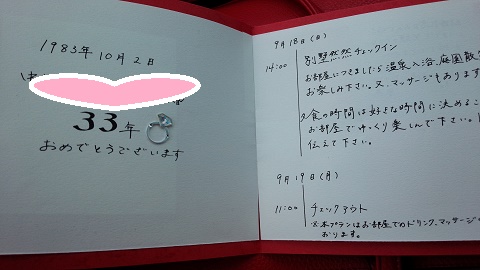 1983年10月2日
33年
おめでとうございます
9月18日(日)
14:00 別墅然然チェックイン
お部屋につきましたら温泉入浴、庭園散
お楽しみ下さい。又、マッサージもあります
夕食の時間は好きな時間に決めるこ
お部屋でゆっくり楽しんで下さい。
伝えて下さい。
9月19日(月)
11:00 チェックアウト
※本プランはお部屋でのドリンク、マッサージ
おります。